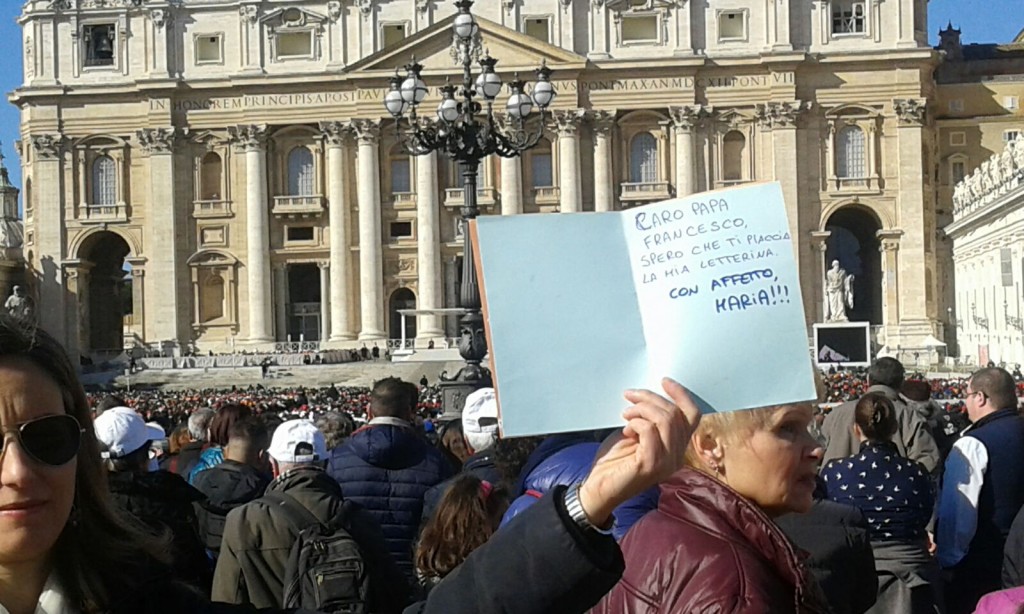 IN HONOREM PRINCIPIS APOST PAV VS PONT MAX AN MDCXII PONT VII
CARO PAPA
FRANCESCO,
SPERO CHE TI PIACCIA
LA MIA LETTERINA.
CON AFFETTO,
MARIA!!!